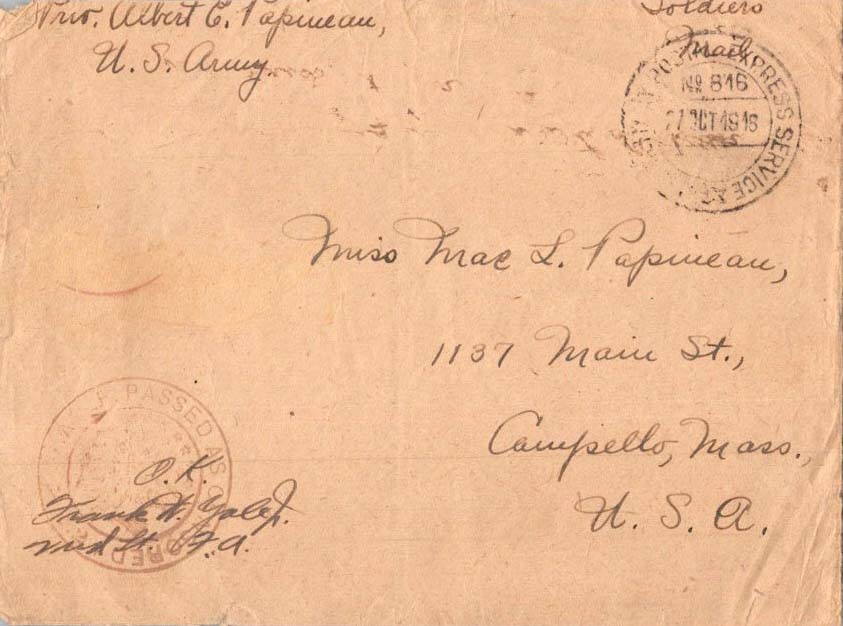 Priv. Albert E. Papineau,
U. S. Army
Soldiers
Mail
POSTAL EXPRESS SERVICE
No 816
27 OCT 1918
Miss Mae L. Papineau,
1137 Main St.,
Campello, Mass.,
U. S. A.
A.E.F. PASSED AS CENSORED
O.K.
Frank H.
F.A.